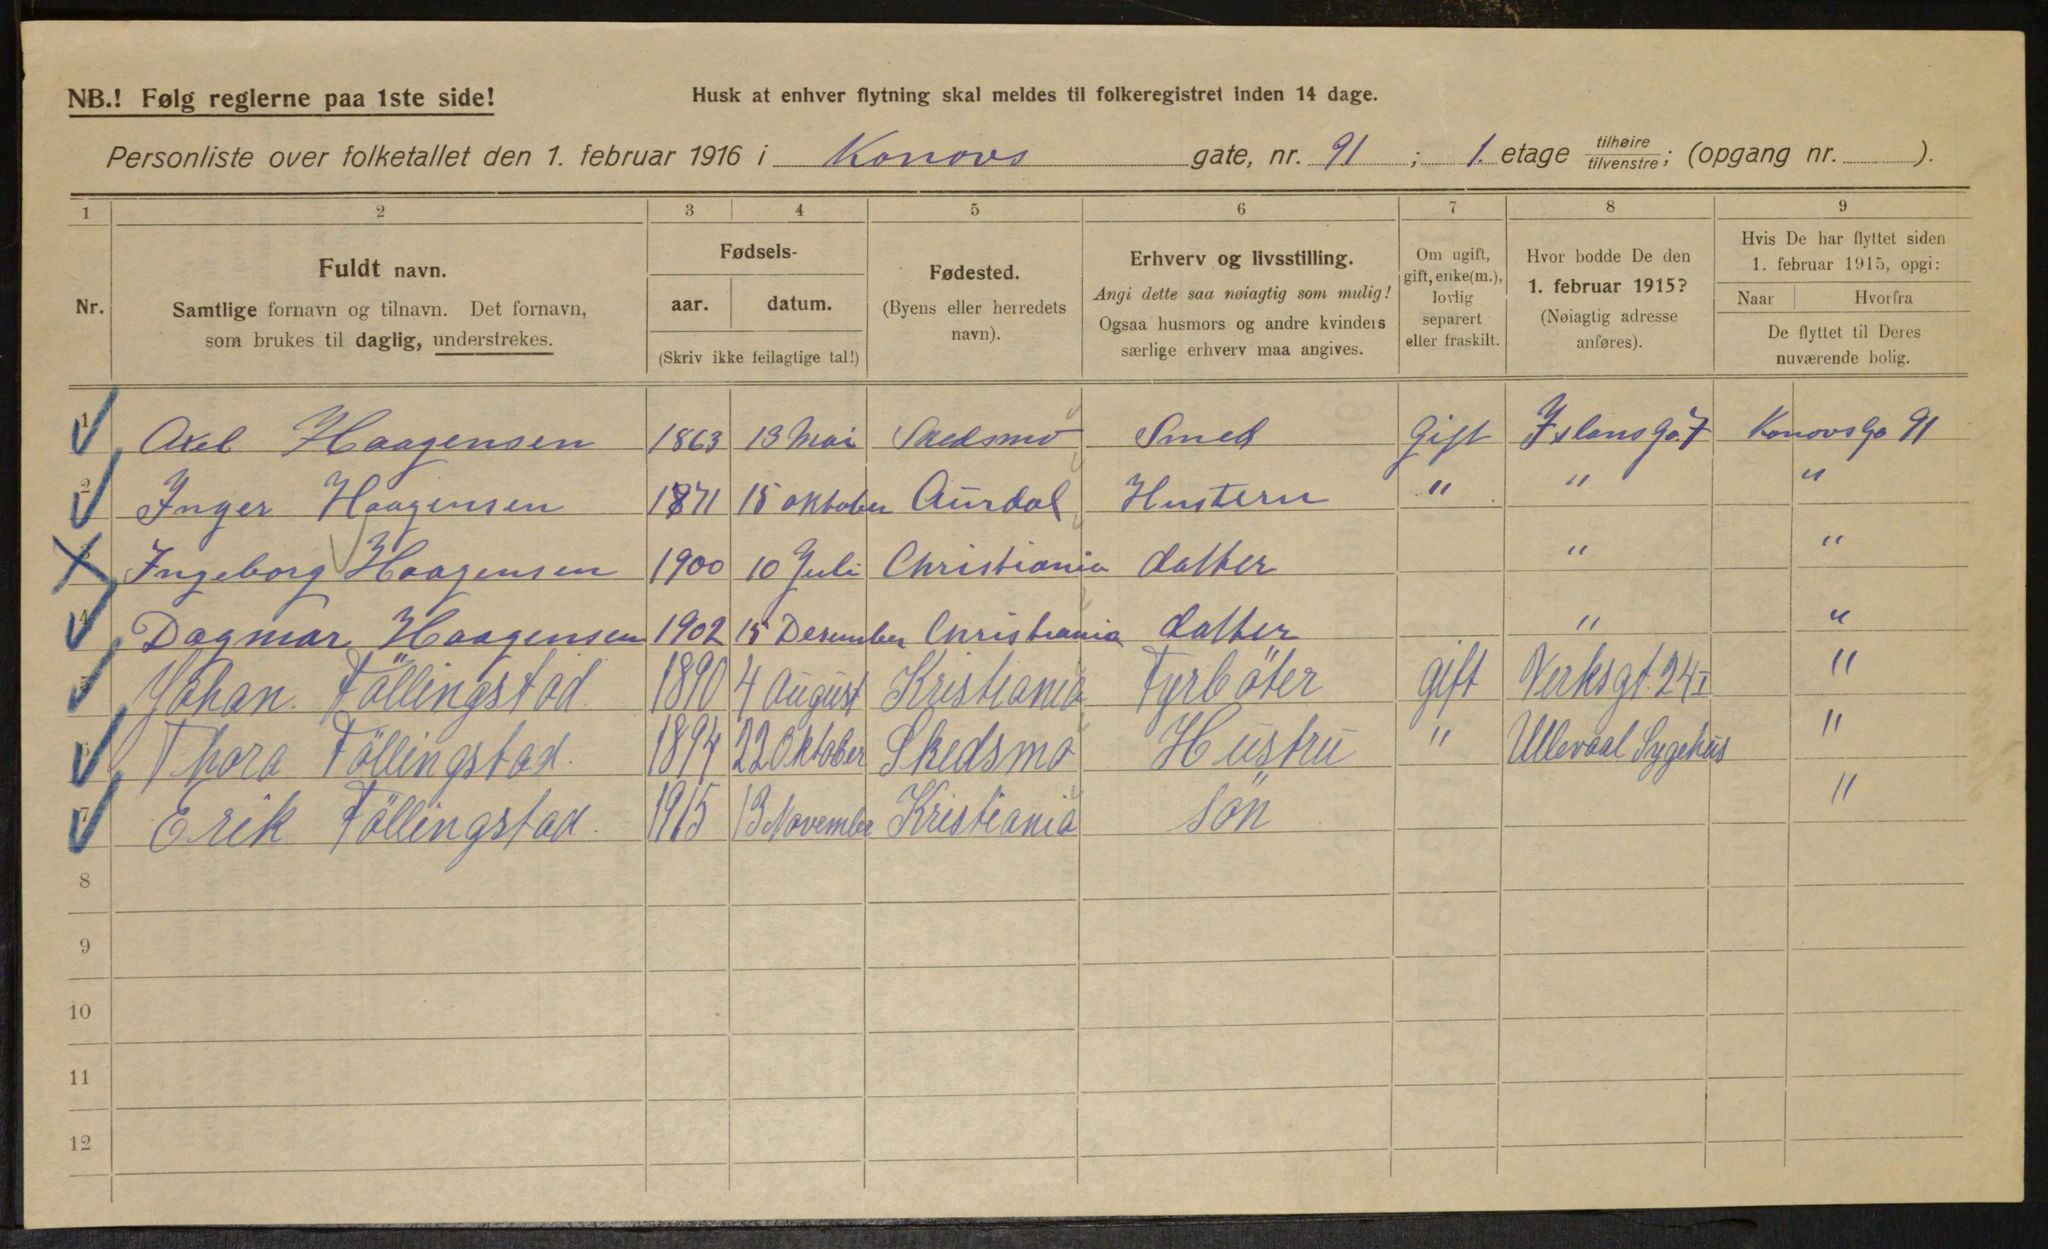 NB.! Følg reglerne paa 1ste side!
Husk at enhver flytning skal meldes til folkeregistret inden 14 dage.
Personliste over folketallet den 1. februar 1916 i Konovs gate, nr. 91 ; 1. etage tilhøire/tilvenstre; (opgang nr. ).
1 2 3 4 5 6 7 8 9
Nr.
Fuldt navn.
Samtlige fornavn og tilnavn. Det fornavn,
som brukes til daglig, understrekes.
Fødsels-
aar. datum.
(Skriv ikke feilagtige tal!)
Fødested.
(Byens eller herredets
navn).
Erhverv og livsstilling.
Angi dette saa nøiagtig som mulig!
Ogsaa husmors og andre kvinders
særlige erhverv maa angives.
Om ugift,
gift, enke(m.),
lovlig
separert
eller fraskilt.
Hvor bodde De den
1. februar 1915?
(Nøiagtig adresse
anføres).
Hvis De har flyttet siden
1. februar 1915, opgi:
Naar Hvorfra
De flyttet til Deres
nuværende bolig.
1 Axel Haagensen 1863 13 Mai Skedsmo Smed Gift Islansga 7 Konovsga 91
2 Inger Haagensen 1871 15 oktober Aurdal Hustern " " "
3 Ingeborg Haagensen 1900 10 Juli Christiania datter " "
4 Dagmar Haagensen 1902 15 Desember Christiania datter " "
5 Johan. Föllingstad. 1890 4 August Kristiania Fyrböter gift Verksgt. 24 I "
6 Thora Föllingstad. 1894 22 Oktober Skedsmo Hustru " Ullevaal Sygehus "
7 Erik Föllingstad. 1915 13 November Kristiania sön "
8
9
10
11
12